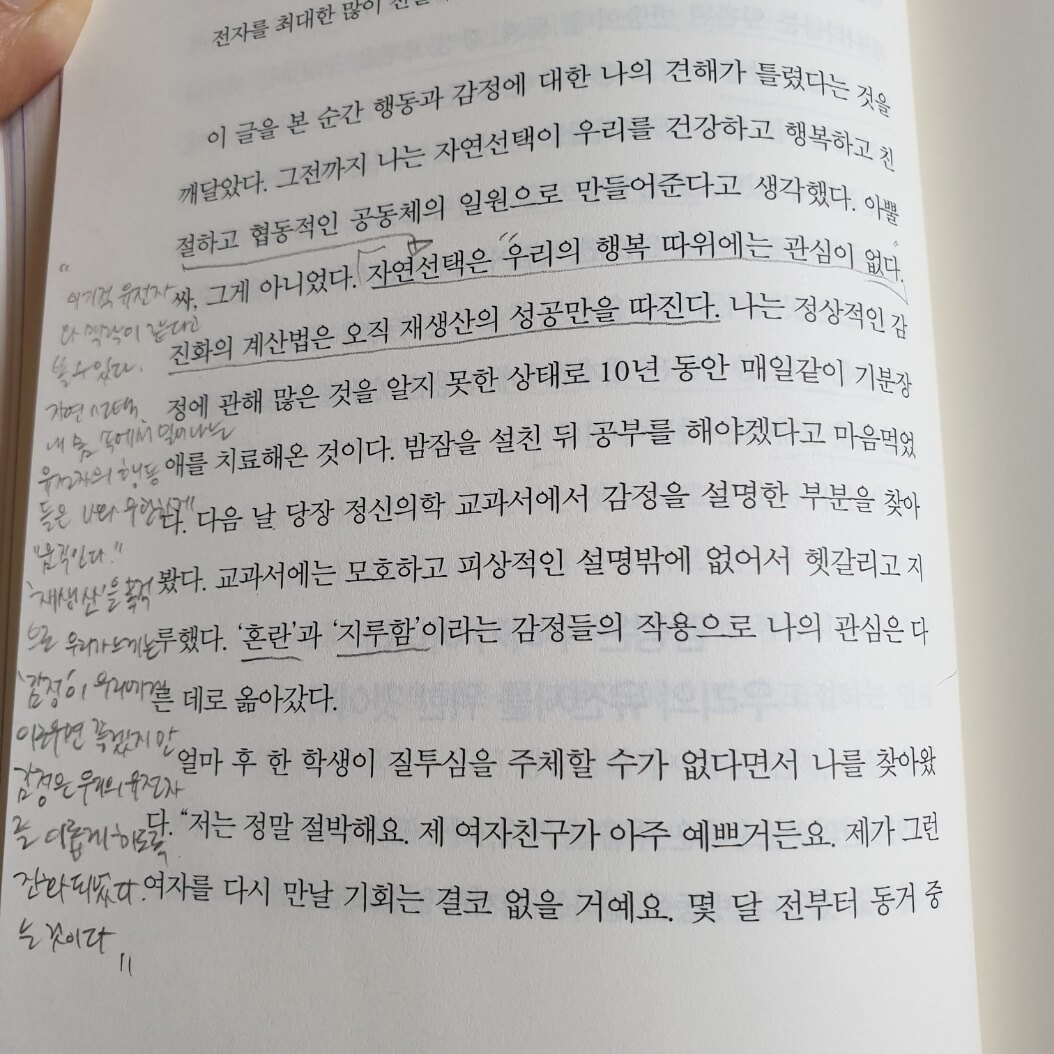 전자를 최대한 많이
이 글을 본 순간 행동과 감정에 대한 나의 견해가 틀렸다는 것을
깨달았다. 그전까지 나는 자연선택이 우리를 건강하고 행복하고 친
절하고 협동적인 공동체의 일원으로 만들어준다고 생각했다. 아뿔
싸, 그게 아니었다. 자연선택은 "우리의 행복 따위에는 관심이 없다."
진화의 계산법은 오직 재생산의 성공만을 따진다. 나는 정상적인 감
정에 관해 많은 것을 알지 못한 상태로 10년 동안 매일같이 기분장
애를 치료해온 것이다. 밤잠을 설친 뒤 공부를 해야겠다고 마음먹었
다. 다음 날 당장 정신의학 교과서에서 감정을 설명한 부분을 찾아
봤다. 교과서에는 모호하고 피상적인 설명밖에 없어서 헷갈리고 지
루했다. ‘혼란’과 ‘지루함’이라는 감정들의 작용으로 나의 관심은 다
른 데로 옮아갔다.
얼마 후 한 학생이 질투심을 주체할 수가 없다면서 나를 찾아왔
다. “저는 정말 절박해요. 제 여자친구가 아주 예쁘거든요. 제가 그런
여자를 다시 만날 기회는 결코 없을 거예요. 몇 달 전부터 동거 중
"
이기적 유전자
와 맥락이 같다고
볼 수 있다.
자연 선택,
내 몸 속에서 일어나는
유전자의 행동
들은 나와 무관하게
"움직인다."
'재생산'을 목적
으로 우리가 느끼는
'감정'이 우리에게
이로우면 좋겠지만
감정은 우리의 유전자
를 이롭게 하도록
진화되었다
는 것이다
"